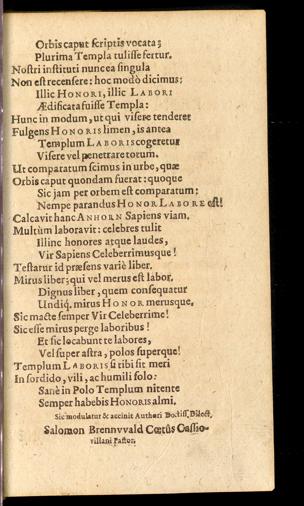 Orbis caput scriptis vocata;
Plurima Templa tulisse fertur.
Nostri instituti nunc ea singula
Non est recensere: hoc modò dicimus:
Illic HONORI, illic LABORI
Ædificata fuisse Templa:
Hunc in modum, ut qui visere tenderet
Fulgens HONORIS limen, is antea
Templum LABORIS cogeretur
Visere vel penetrare totum.
Ut comparatum scimus in urbe, quæ
Orbis caput quondam fuerat: quoque
Sic jam per orbem est comparatum:
Nempe parandus HONOR LABORE est!
Calcavit hanc ANHORN Sapiens viam,
Multùm laboravit: celebres tulit
Illinc honores atque laudes,
Vir Sapiens Celeberrimusque!
Testatur id præsens variè liber.
Mirus liber; qui vel merus est labor,
Dignus liber, quem consequatur
Undiq́, mirus HONOR merusque.
Sic macte semper Vir Celeberrime!
Sic esse mirus perge laboribus!
Et sic locabunt te labores,
Vel super astra, polos superque!
Templum LABORIS si tibi sit meri
In sordido, vili, ac humili solo:
Sanè in Polo Templum nitente
Semper habebis HONORIS almi.
Sic modulatur & accinit Authori Doctiss, Dilect,
Salomon Brennvvald Cœtûs Cassio-
villani Pastor.